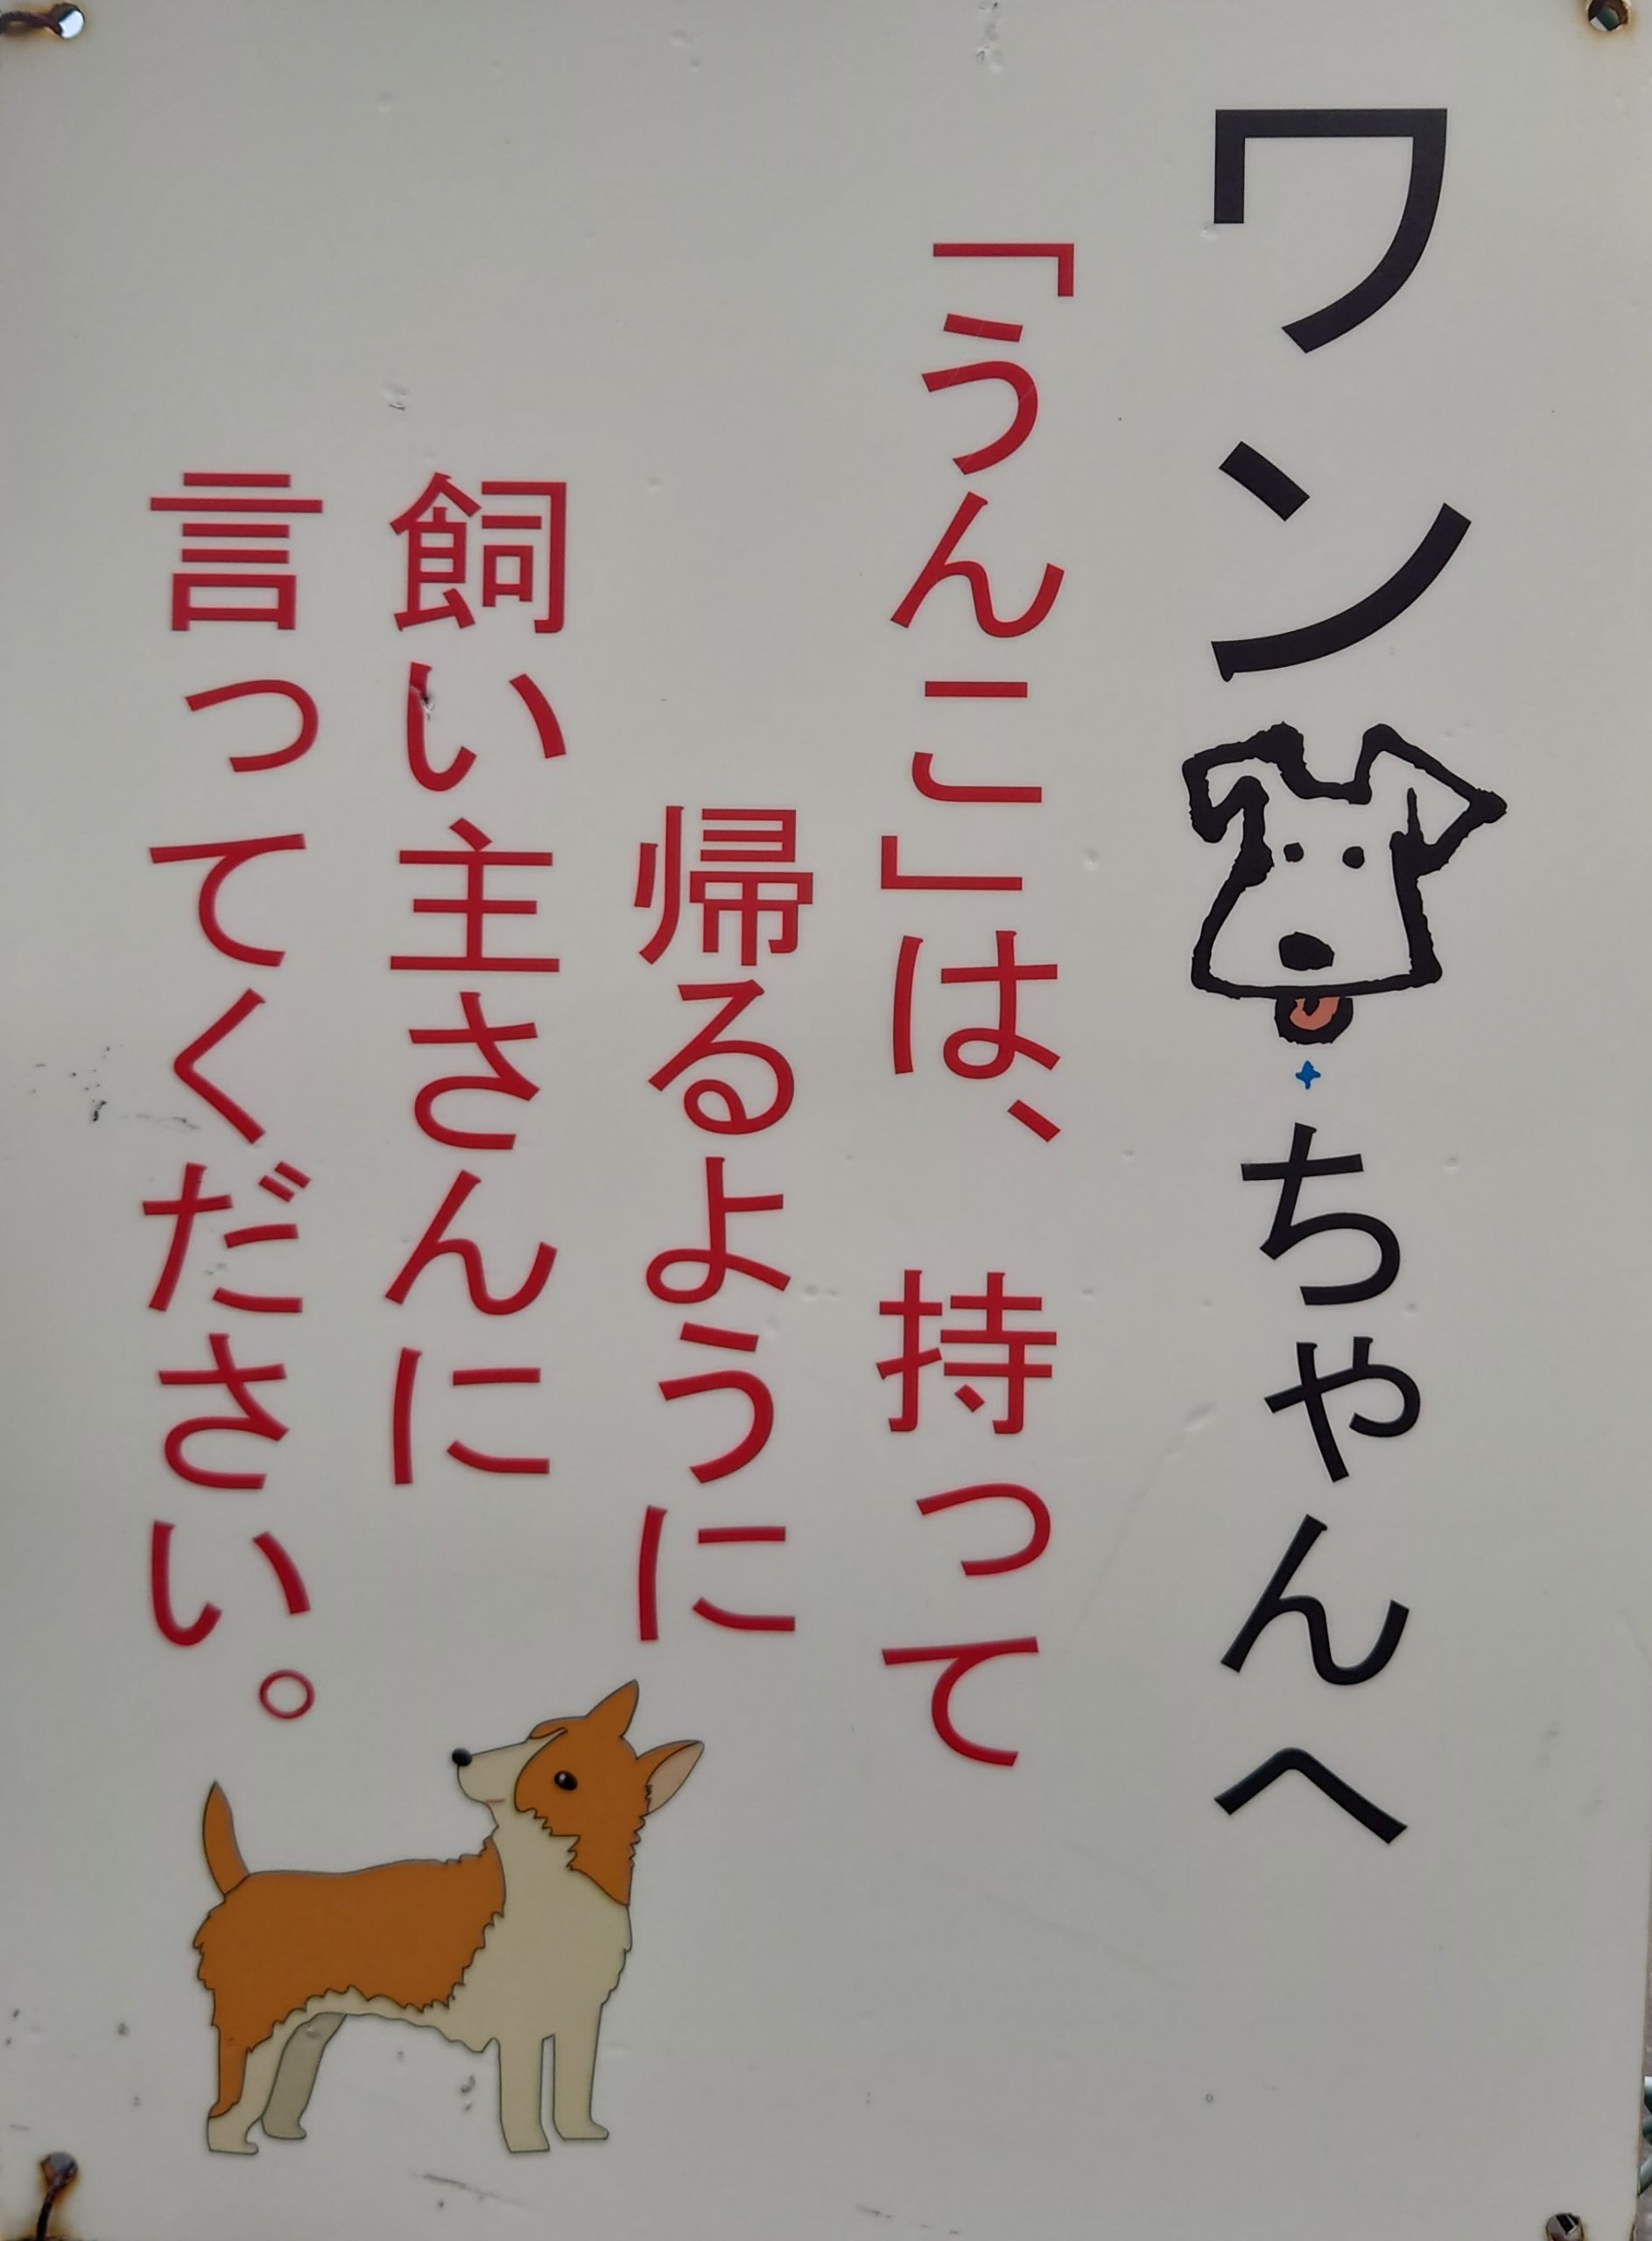 ワンちゃんへ
「うんこ」は、 持って
帰るように
飼い主さんに
言ってください。